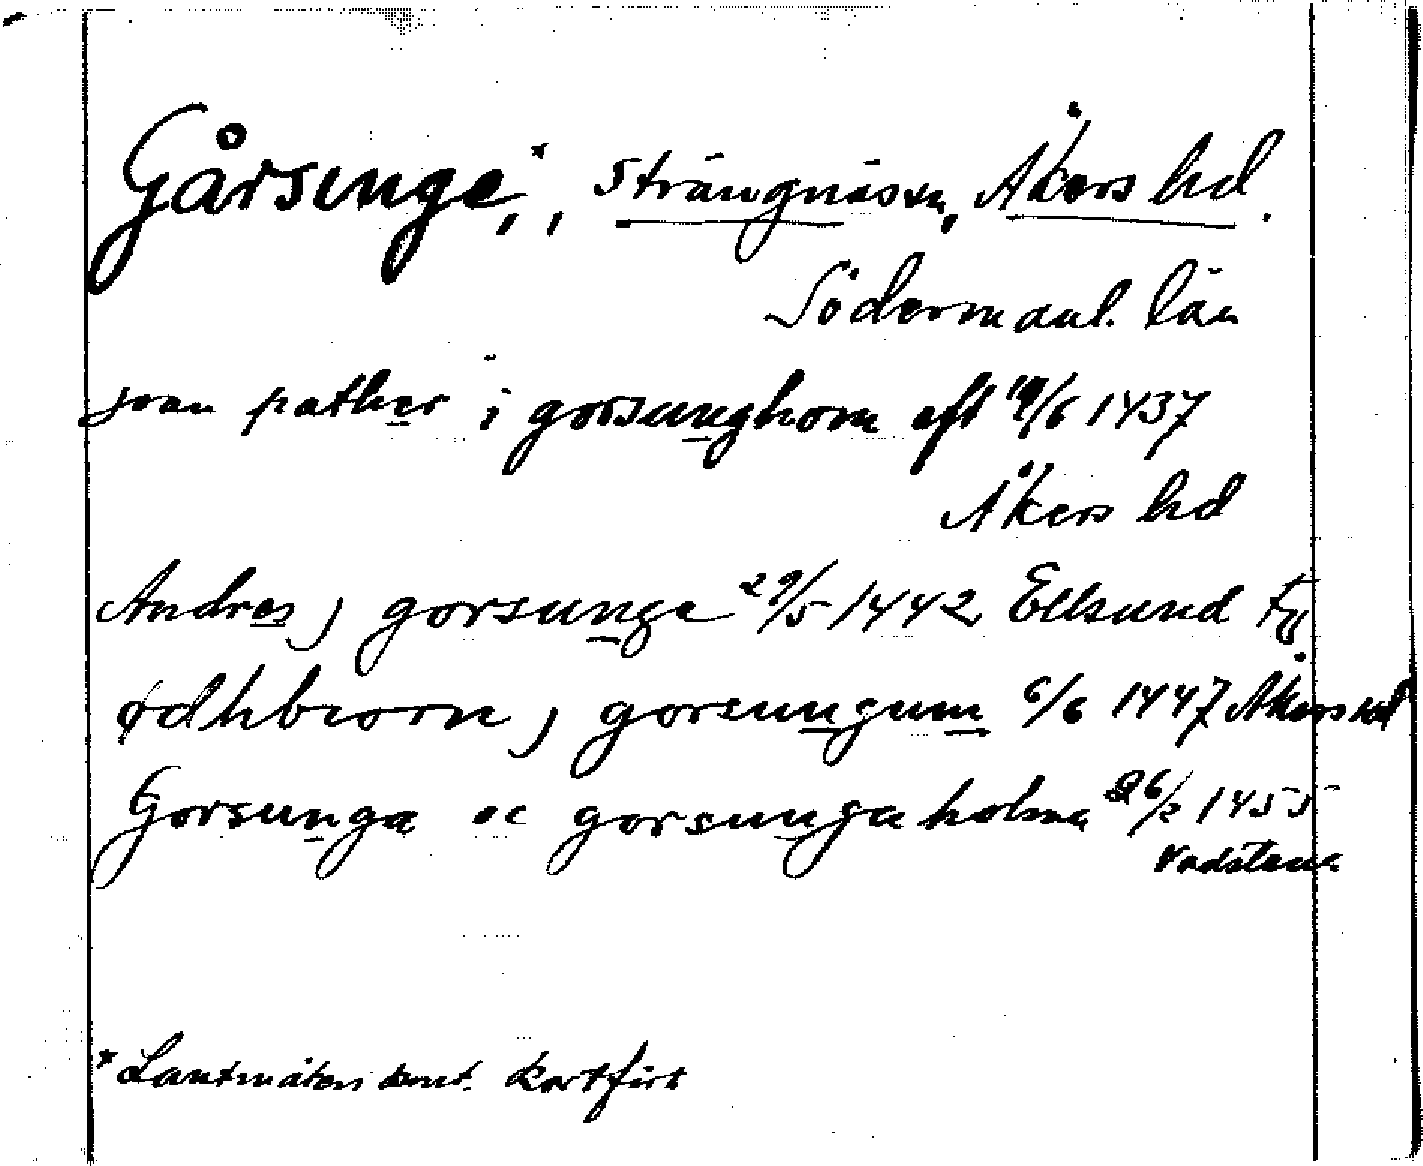 Gårsinge*, Strängnäs sn, Åkers hd.
Södermanl. län
joan pather i gorsunghom eft 19/6 1437
Åkers hd
Andres j gorsunge 29/5 1442 Ellsund
ødhbiorn j gorsungum 6/6 1447 Åkers hd
Gorsunga oc gorsunga holma 26/2 1455
Vadstena
* Lantmäteri kont. kartfört